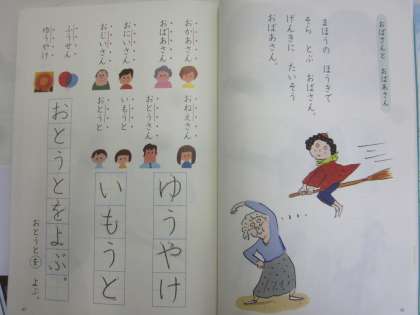 おばさんと おばあさん
まほうの ほうきで
そら とぶ おばさん。
げんきに たいそう
おばあさん。
おかあさん
おばあさん
おにいさん
おじいさん
ふうせん
ゆうやけ
おねえさん
おとうさん
いもうと
おとうと
ゆうやけ
いもうと
おとうとをよぶ。
おとうとを よぶ。